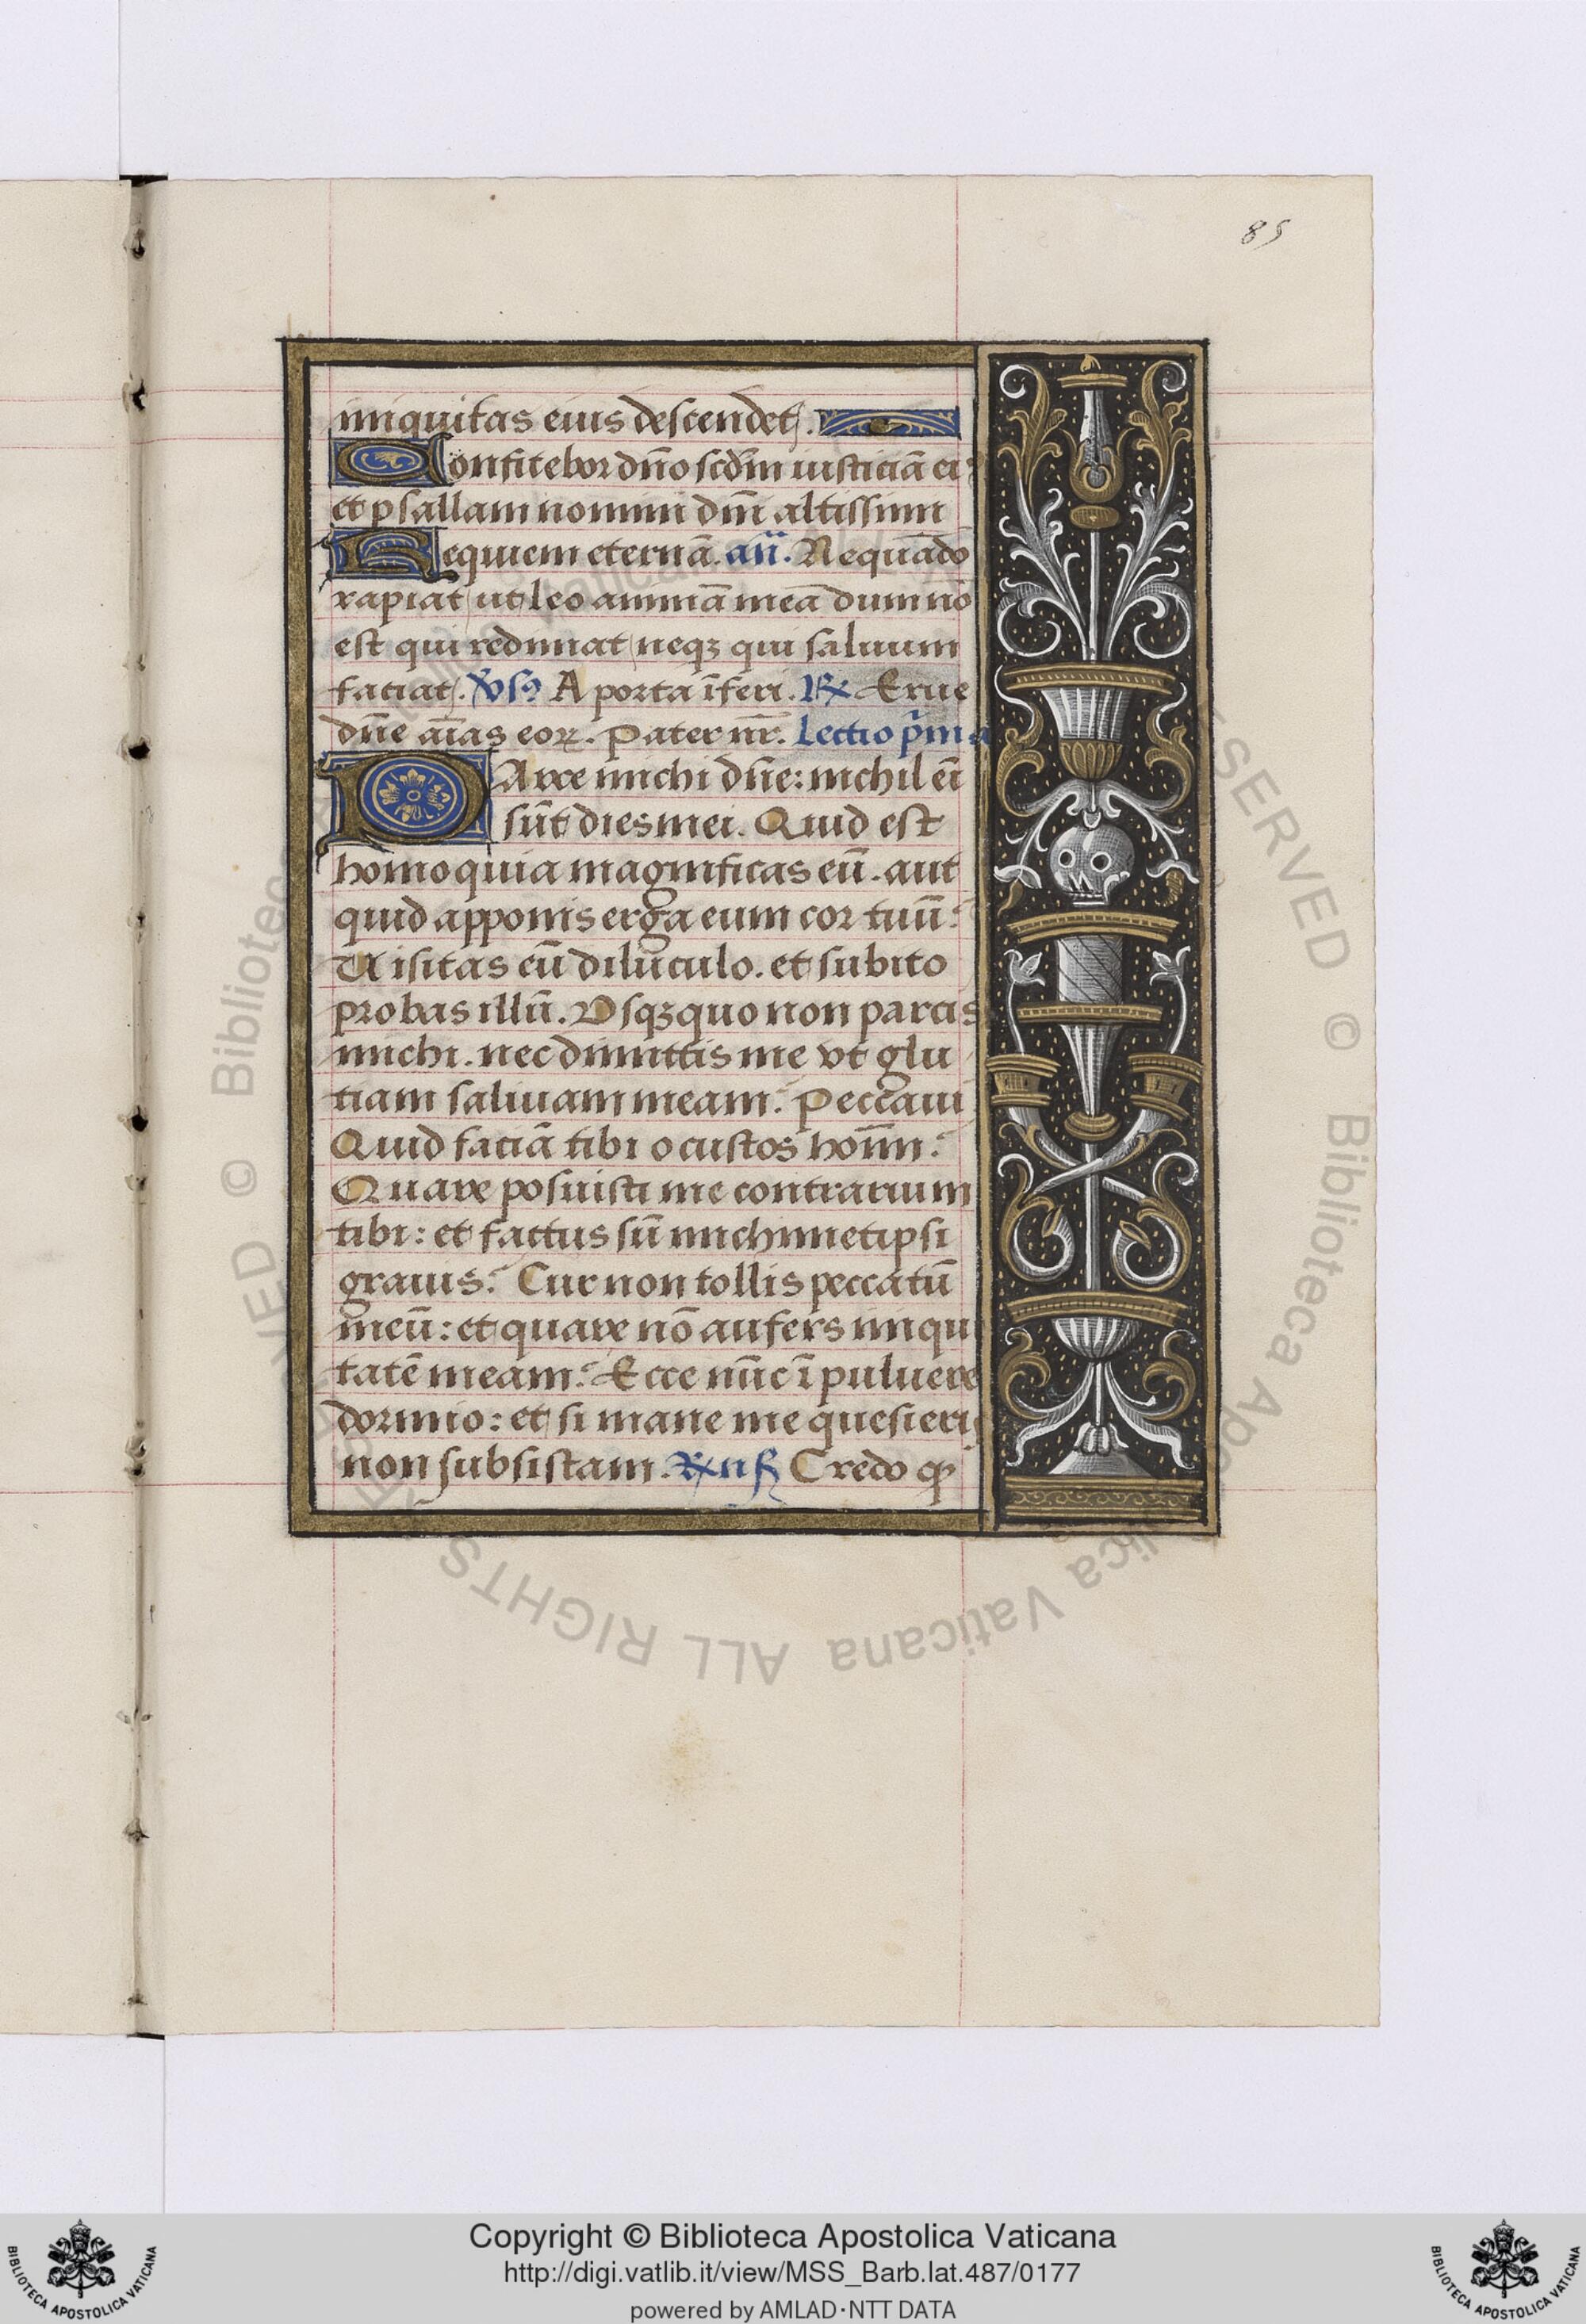 85
iniquitas eius descendet.
Confitebor dño scđm iusticiā ei⁹
et psallam nomini dñi altissimi
Requiem eternā. añ. Nequādo
rapiat ut leo animā meā dum nō
est qui redimat neqꝫ qui saluum
faciat. ℣sꝰ A porta īferi. ℞ Erue
dñe aīas eoꝝ. Pater nr̄. Lectio pͥma
PArce michi dñe: nichil eī
sūt dies mei. Quid est
homo quia magnificas eū. aut
quid apponis erga eum cor tuū?
Uisitas eū diluculo. et subito
probas illū. Vsqꝫquo non parcis
michi. nec dimittis me vt glu
tiam saliuam meam? Peccaui
Quid faciā tibi o custos hoīm?
Quare posuisti me contrarium
tibi: et factus sū michimetipsi
grauis? Cur non tollis peccatū
meū: et quare nō aufers iniqui
tatē meam? Ecce nūc ī puluere
dormio: et si mane me quesieris
non subsistam. ℞ Credo ꝙ
© Biblioteca Apostolica Vaticana ALL RIGHTS RESERVED
Copyright © Biblioteca Apostolica Vaticana
http://digi.vatlib.it/view/MSS_Barb.lat.487/0177
powered by AMLAD·NTT DATA
BIBLIOTECA APOSTOLICA VATICANA
BIBLIOTECA APOSTOLICA VATICANA